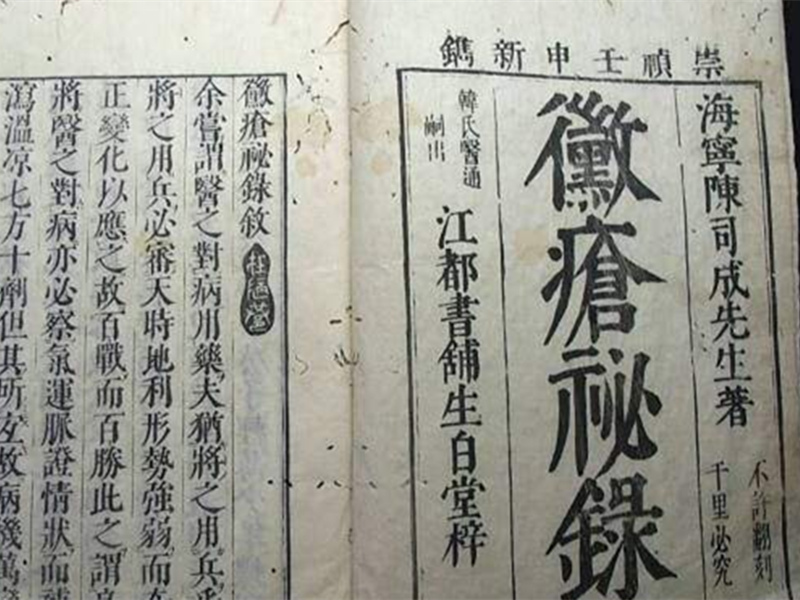 崇禎壬申新鐫
海寧陳司成先生著
不許翻刻
千里必究
黴瘡祕錄
韓氏醫通
嗣出
江都書舖生白堂梓
黴瘡祕錄敘
余嘗謂醫之對病用藥夫猶將之用兵乎
將之用兵必審天時地利形勢強弱而
正變化以應之故百戰而百勝此之謂
將醫之對病亦必察氣運脈證情狀而
瀉溫凉七方十劑但其所在故病機萬